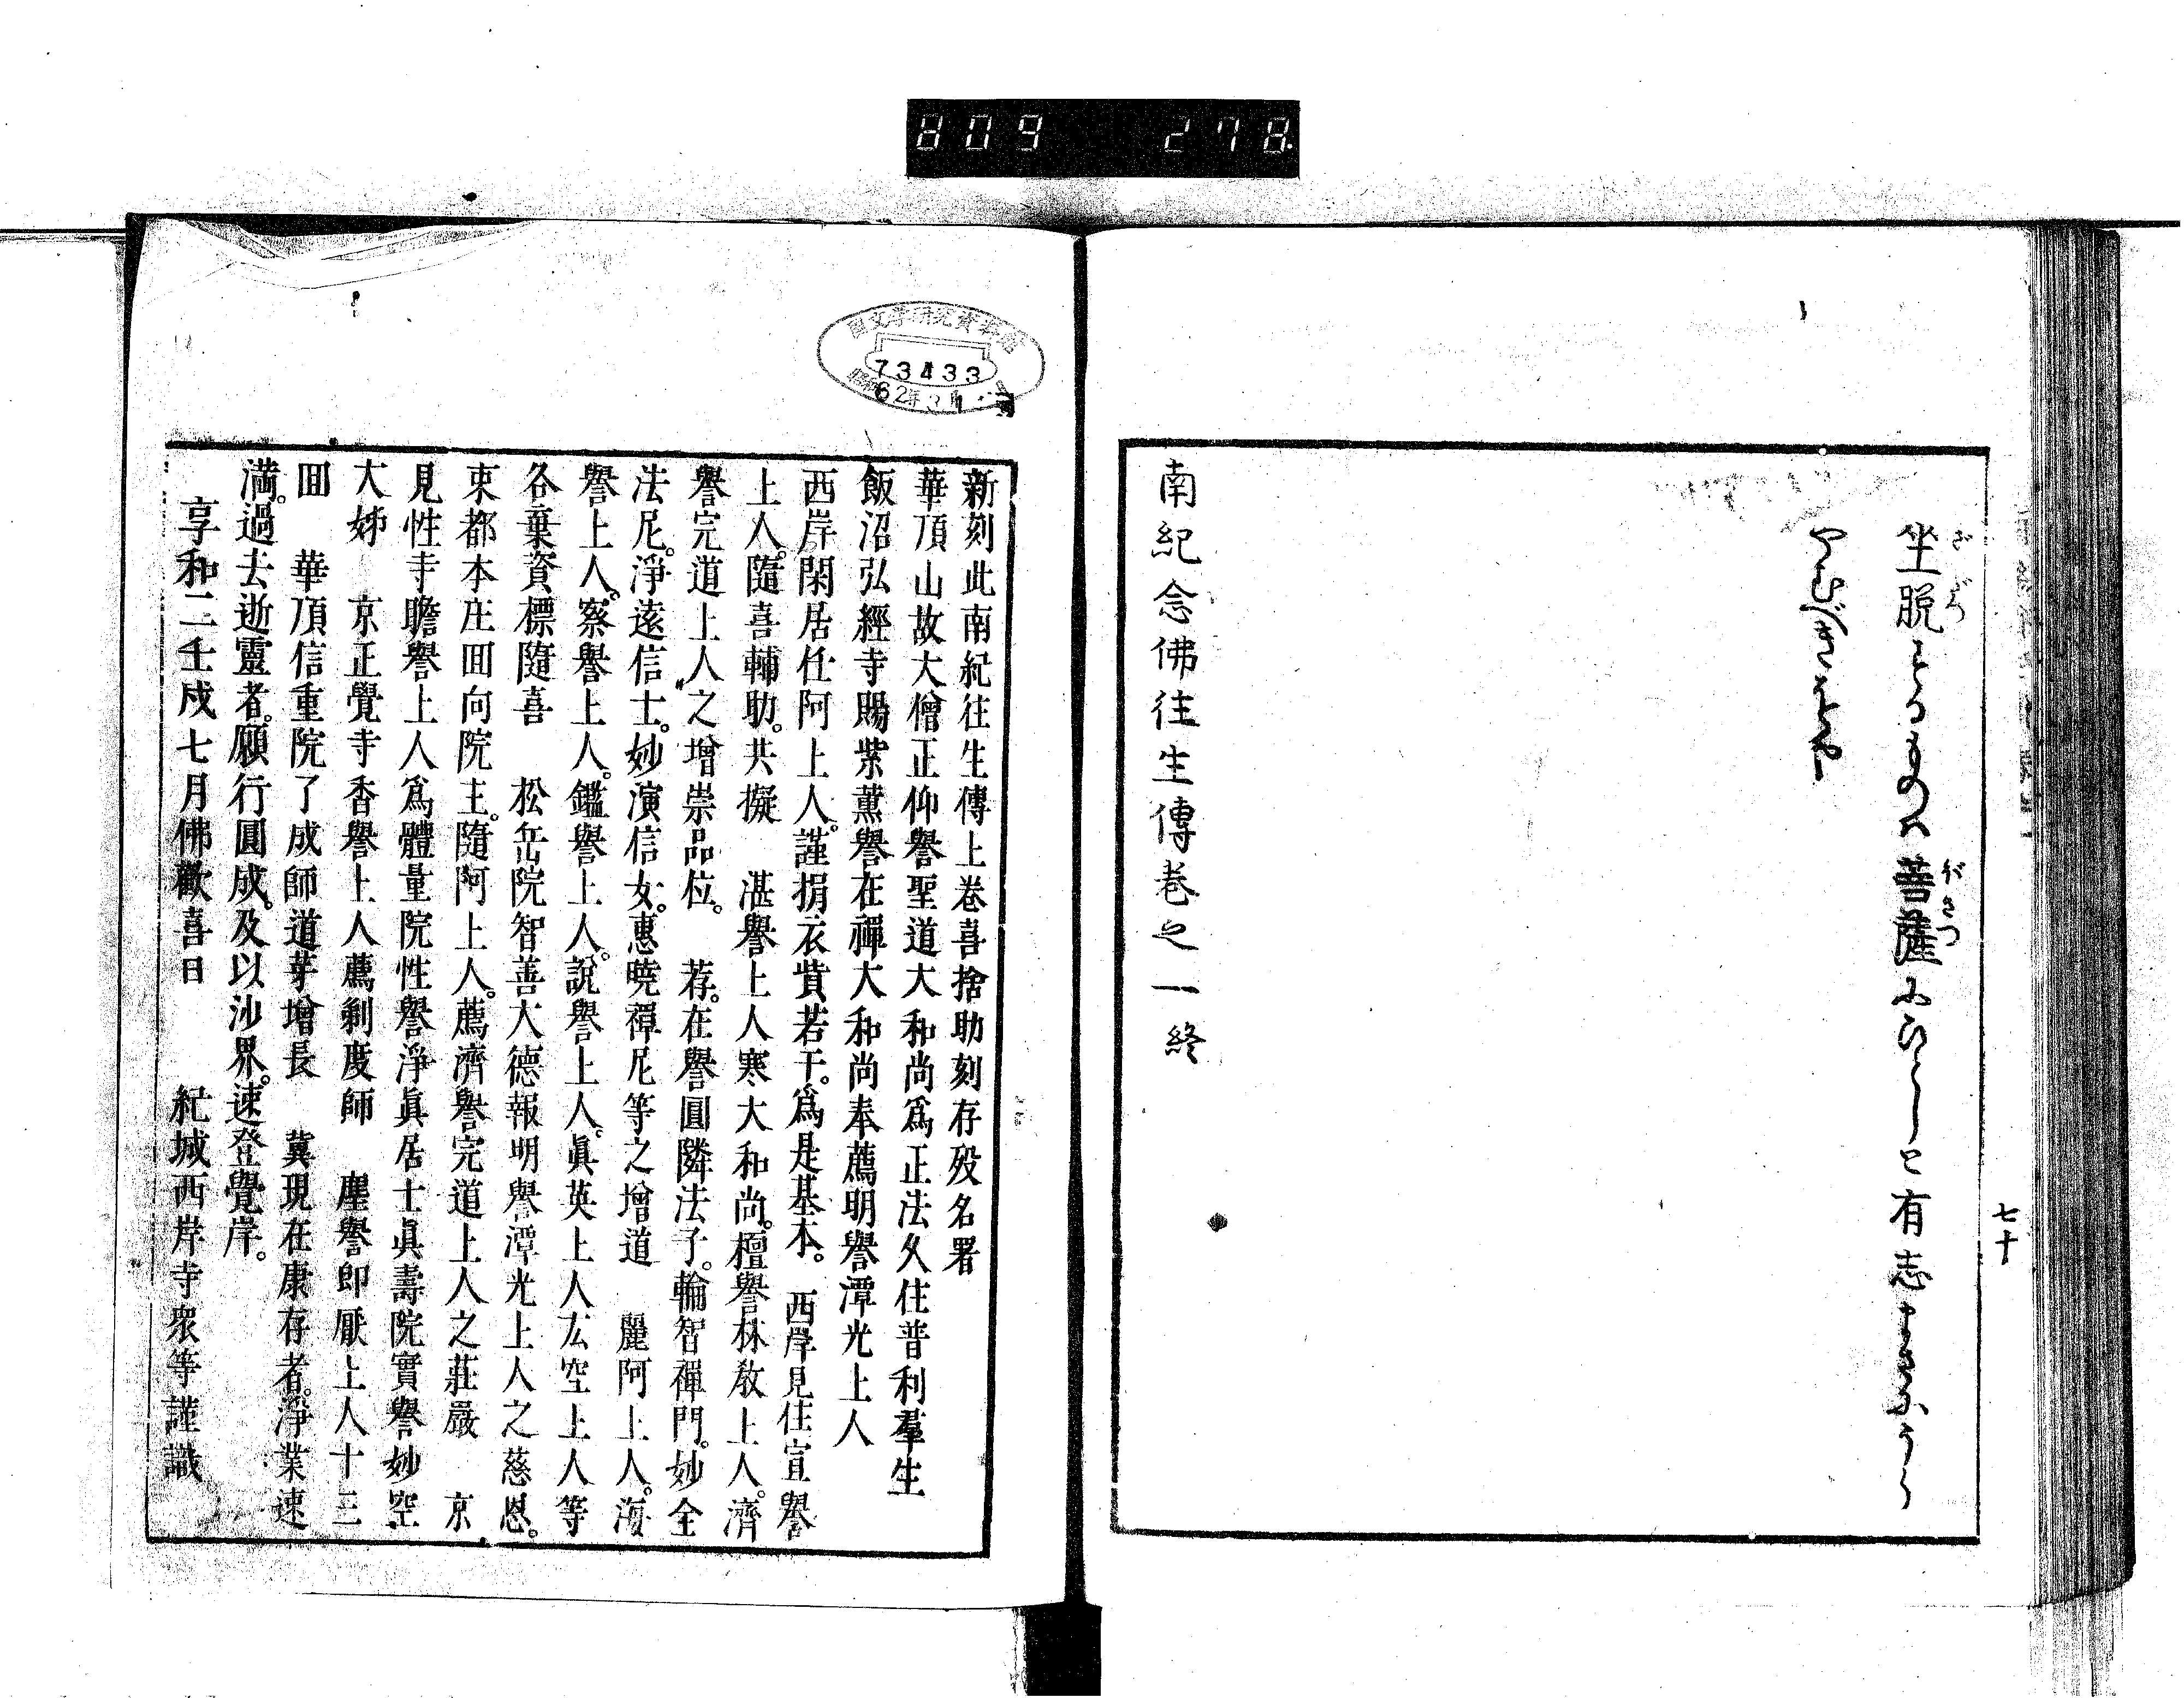 809 278
坐脱するものハ菩薩にひとしと有志
南紀念佛往生傳巻之一終
七十
國文学研究資料館
73433
新刻此南紀往生傳上巻喜捨助刻存殁名署
華頂山故大僧正仰譽聖道大和尚爲正法久住普利羣生
飯沼弘經寺賜紫薫譽在禪大和尚奉薦明譽潭光上人
西岸閑居任阿上人。謹捐衣貲若干。爲是基本。 西岸見住宣譽
上人。隨喜輔助。共擬 湛譽上人寒大和尚。檀譽林教上人。濟
譽完道上人之增崇品位。 荐。在譽圓隣法子。輪智禪門。妙全
法尼。淨遠信士。妙演信女。惠曉禪尼等之增道 麗阿上人。海
譽上人。察譽上人。鑑譽上人。說譽上人。眞英上人厷空上人等
各棄資標隨喜 松岳院智善大德報明譽潭光上人之慈恩。
東都本庄回向院主。隨阿上人。薦濟譽完道上人之莊嚴 京
見性寺瞻譽上人爲體量院性譽淨眞居士眞壽院實譽妙空
大姊 京正覺寺香譽上人薦剃度師 塵譽卽厭上人十三
回 華頂信重院了成師道芽增長 冀現在康存者。淨業速
満。過去逝靈者。願行圓成。及以沙界。速登覺岸。
享和二壬戌七月佛歡喜日 紀城西岸寺衆等謹識